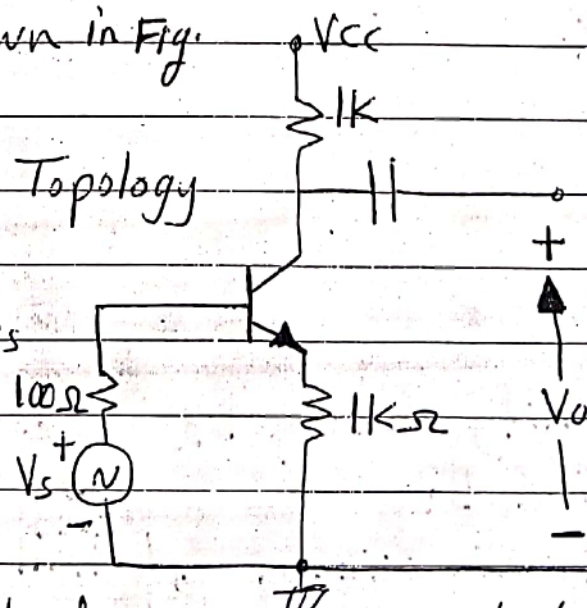 wn in Fig.
VCC
1K
Topology
+
s
100Ω
1KΩ
Vo
+
Vs
-
-